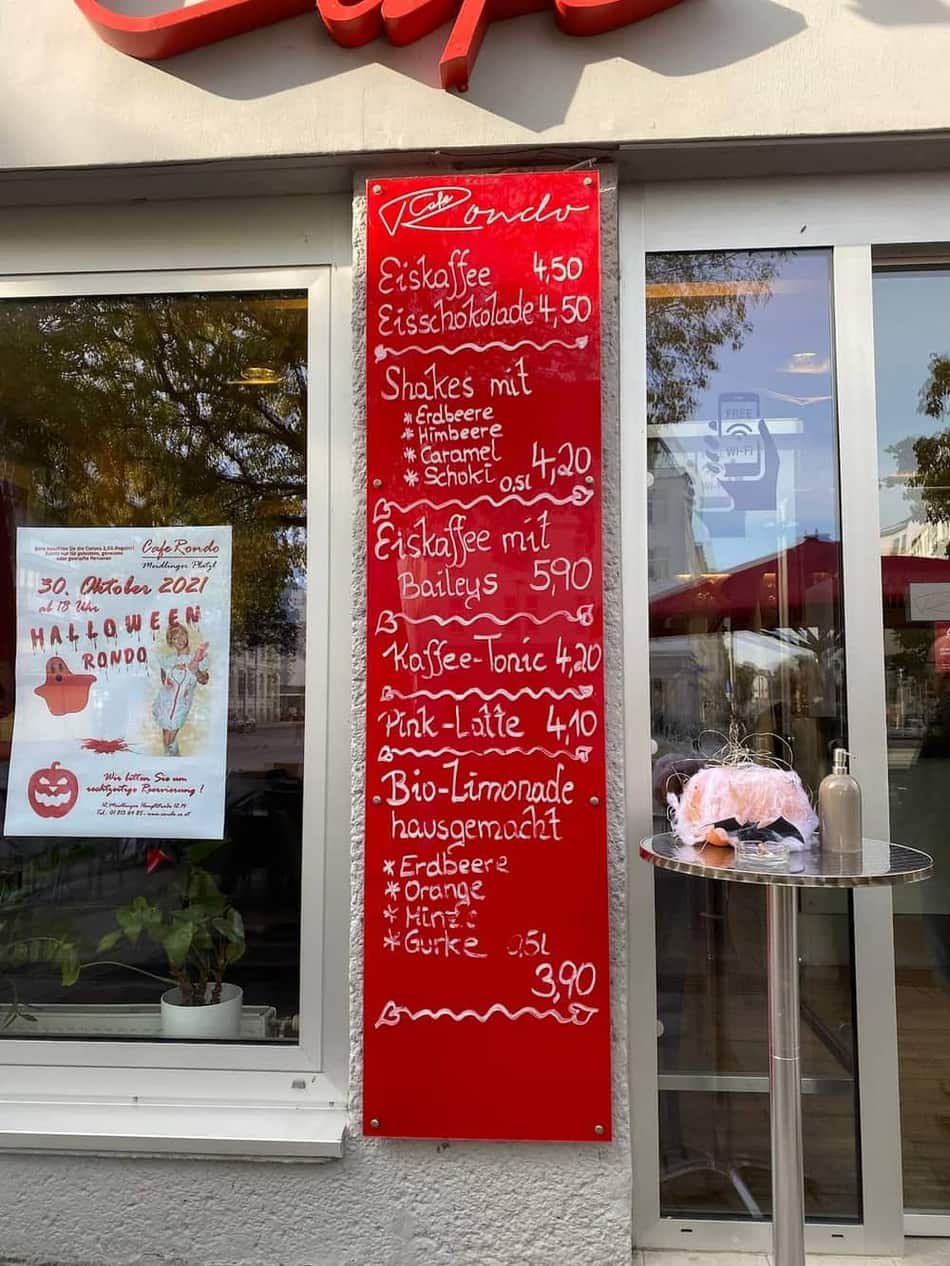 Cafe
Cafe Rondo
Eiskaffee 4,50
Eisschokolade 4,50
Shakes mit
* Erdbeere
* Himbeere
* Caramel
* Schoki 0,5l 4,20
Eiskaffee mit
Baileys 5,90
Kaffee-Tonic 4,20
Pink-Latte 4,10
Bio-Limonade
hausgemacht
* Erdbeere
* Orange
* Minze
* Gurke 0,5l
3,90
Cafe Rondo
Meidlinger Platzl
30. Oktober 2021
ab 18 Uhr
HALLOWEEN
RONDO
Wir bitten Sie um
rechtzeitige Reservierung !
FREE
WI-FI